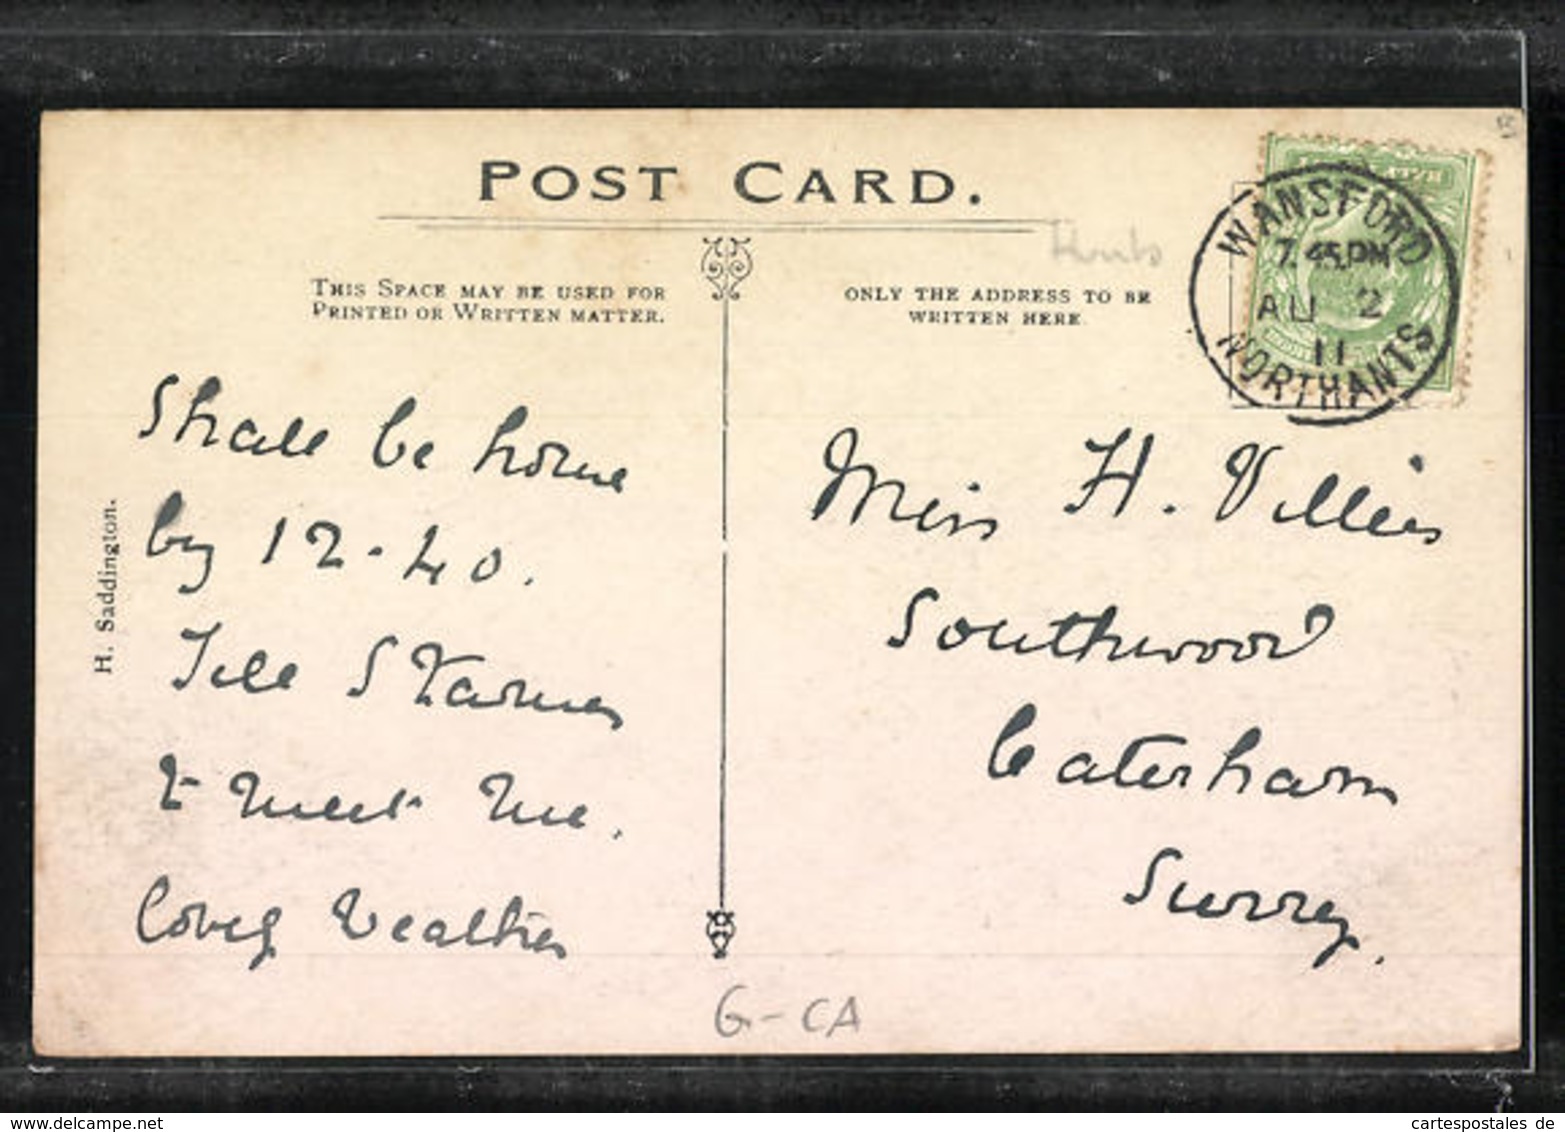 POST CARD.
Hunts
THIS SPACE MAY BE USED FOR
PRINTED OR WRITTEN MATTER.
ONLY THE ADDRESS TO BE
WRITTEN HERE
WANSFORD
7.45PM
AU 2
11
NORTHANTS
H. Saddington.
Shall be home
by 12-40.
Tell Starnes
& meet me.
Lovely weather
Miss H. Villiers
Southwood
Caterham
Surrey.
G-CA
cartespostales de